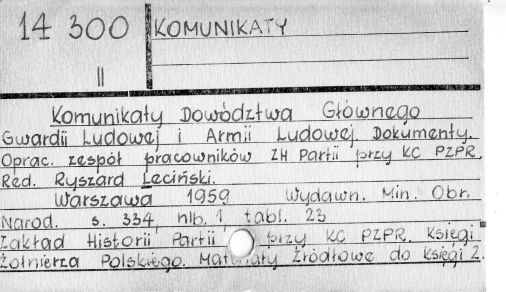 14 300
KOMUNIKATY
II
Komunikaty Dowództwa Głównego
Gwardii Ludowej i Armii Ludowej. Dokumenty.
Oprac. zespół pracowników ZH Partii przy KC PZPR.
Red. Ryszard Leciński.
Warszawa 1959 Wydawn. Min. Obr.
Narod. s. 334, nlb. 1 tabl. 23
Zakład Historii Partii przy KC PZPR. Księgi
Żołnierza Polskiego. Materiały źródłowe do księgi 2.